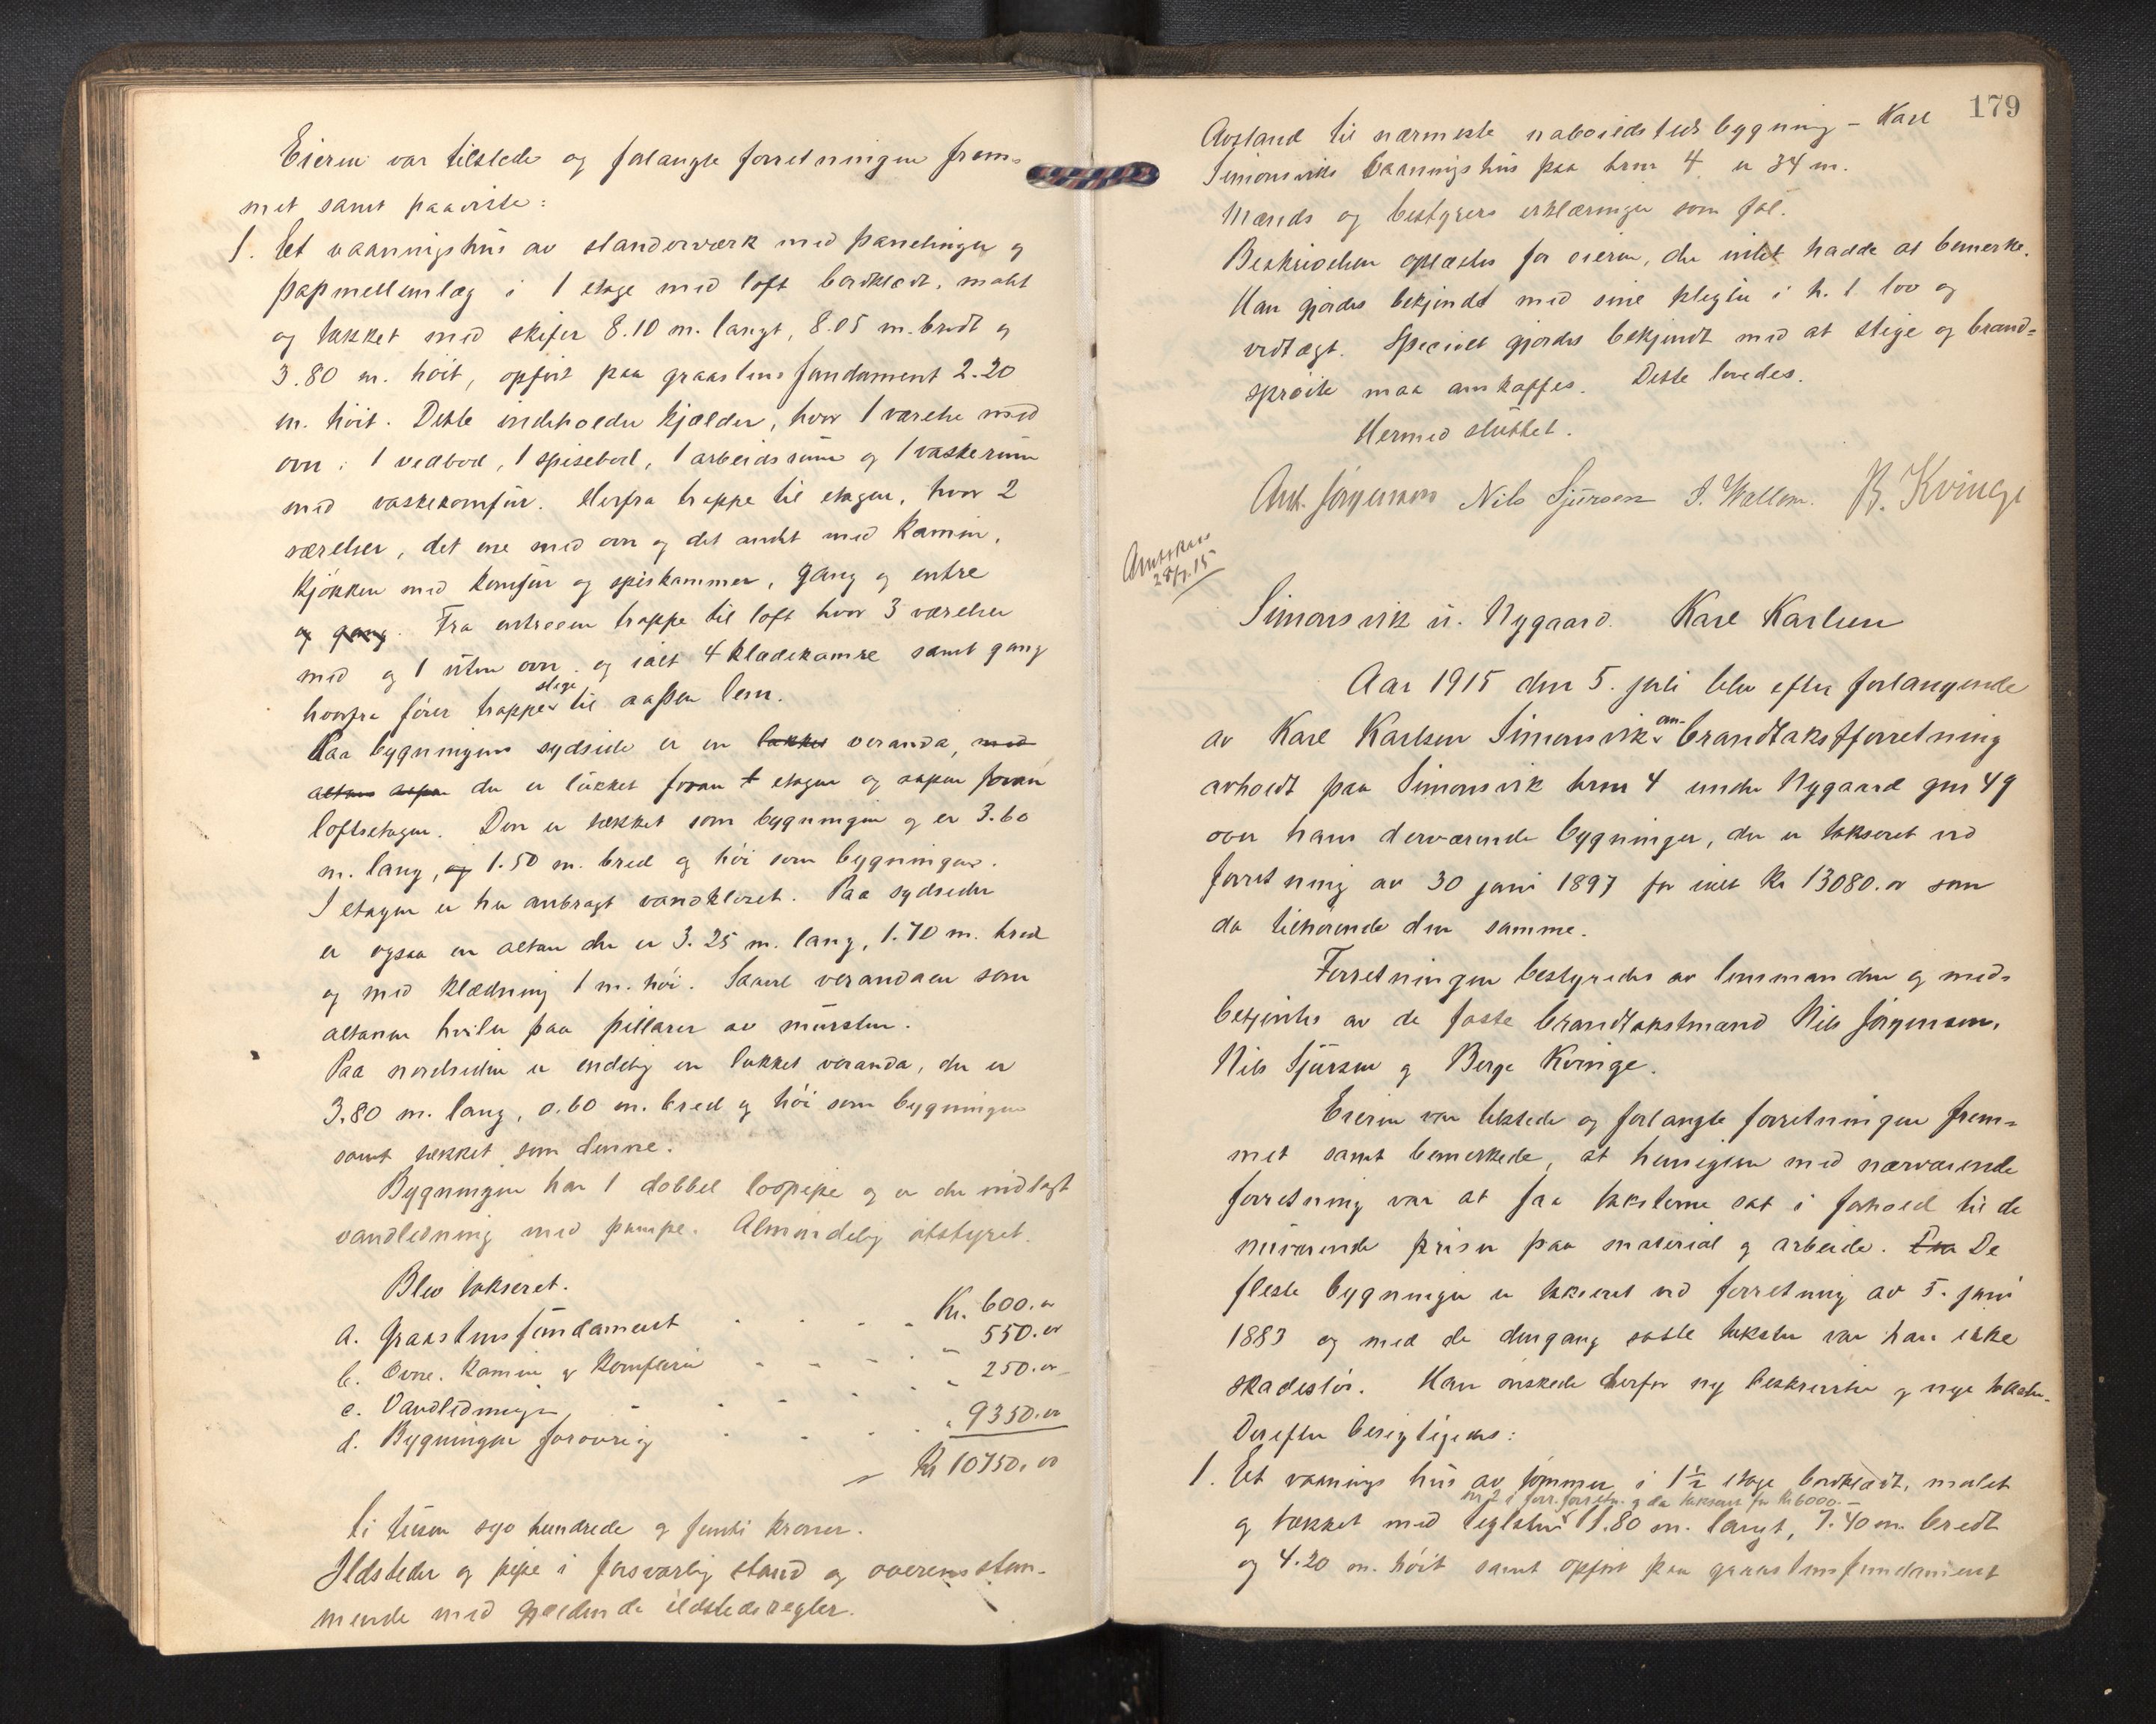 Eieren var tilstede og forlangte forretningen frem-
met samt paaviste:
1. Et vaaningshus av standerværk med panelinger og
papmellemlæg i 1 etage med loft bordklædt, malt
og tækket med skifer 8.10 m. langt, 8.05 m. bredt og
3.80 m. høit, opført paa graastensfundament 2.20
m. høit. Dette indeholder kjælder, hvor 1 værelse med
ovn, 1 vedbod, 1 spisebod, 1 arbeidsrum og 1 vaskerum
med vaskekomfur. Herfra trappe til etagen, hvor 2
værelser, det ene med ovn og det andet med kamin,
kjøkken med komfur og spiskammer, gang og entre
og gang. Fra entreen trappe til loft hvor 3 værelser
med og 1 uten ovn og ialt 4 klædekamre samt gang
hvorfra fører trappe stige til aapen lem.
Paa bygningens sydside er en lukket veranda, med
altan aapen der er lukket foran 1 etagen og aapen foran
loftsetagen. Den er tækket som bygningen og er 3.60
m. lang, og 1.50 m. bred og høi som bygningen.
I etagen er her anbragt vandkloset. Paa sydsiden
er ogsaa en altan der er 3.25 m. lang, 1.70 m. bred
og med klædning 1 m. høi. Saavel verandaen som
altanen hviler paa pillarer av mursten.
Paa nordsiden er endelig en lukket veranda, der er
3.80 m. lang, 0.60 m. bred og høi som bygningen
samt tækket som denne.
Bygningen har 1 dobbel løpipe og er der indlagt
vandledning med pumpe. Almindelig utstyret.
Blev takseret.
a. Graastensfundament - - - - Kr. 600.00
b. Ovne, kamin og komfurer - - - - " 550.00
c. Vandledningen - - - - " 250.00
d. Bygningen forøvrig - - - " 9350.00
Kr 10750.00
ti tusen syv hundrede og femti kroner.
Ildsteder og pipe i forsvarlig stand og overensstem-
mende med gjældende ildstedsregler.
179
Avstand til nærmeste naboildstedsbygning - Karl
Simonsviks vaaningshus paa brnr 4 er 34 m.
Mænds og bestyrers erklæringer som før.
Beskrivelsen oplæstes for eieren, der intet hadde at bemerke.
Han gjordes bekjendt med sine pligter i h. t. lov og
vedtægt. Specielt gjordes bekjendt med at stige og brand-
sprøite maa anskaffes. Dette lovedes.
Hermed sluttet.
Ant. Jørgensen Nils Sjursen J. Wallem. B. Kvinge
28/7.15
Simonsvik u. Nygaard. Karl Karlsen
Aar 1915 den 5. juli blev efter forlangende
av Karl Karlsen Simonsvik om- brandtakstforretning
avholdt paa Simonsvik brnr 4 under Nygaard gnr 49
over hans derværende bygninger, der er takseret ved
forretning av 30 juni 1897 for ialt kr 13080.00 som
da tilhørende den samme.
Forretningen bestyredes av lensmanden og med-
betjentes av de faste brandtakstmænd Nils Jørgensen,
Nils Sjursen og Berge Kvinge.
Eieren var tilstede og forlangte forretningen frem-
met samt bemerkede, at hensigten med nærværende
forretning var at faa taksterne sat i forhold til de
nuværende priser paa material og arbeide. De
fleste bygninger er takseret ved forretning av 5. juni
1883 og med de dengang satte takster var han ikke
skadesløs. Han ønskede derfor ny beskrivelse og nye takster.
Derefter besigtigedes:
1. Et vaaningshus av tømmer i 1½ etage bordklædt, malet
nr 2 i forr. forretn. og da takseret for kr 6000.-
og tækket med teglsten 11.80 m. langt, 7.40 m. bredt
og 4.20 m. høit samt opført paa graastensfundament